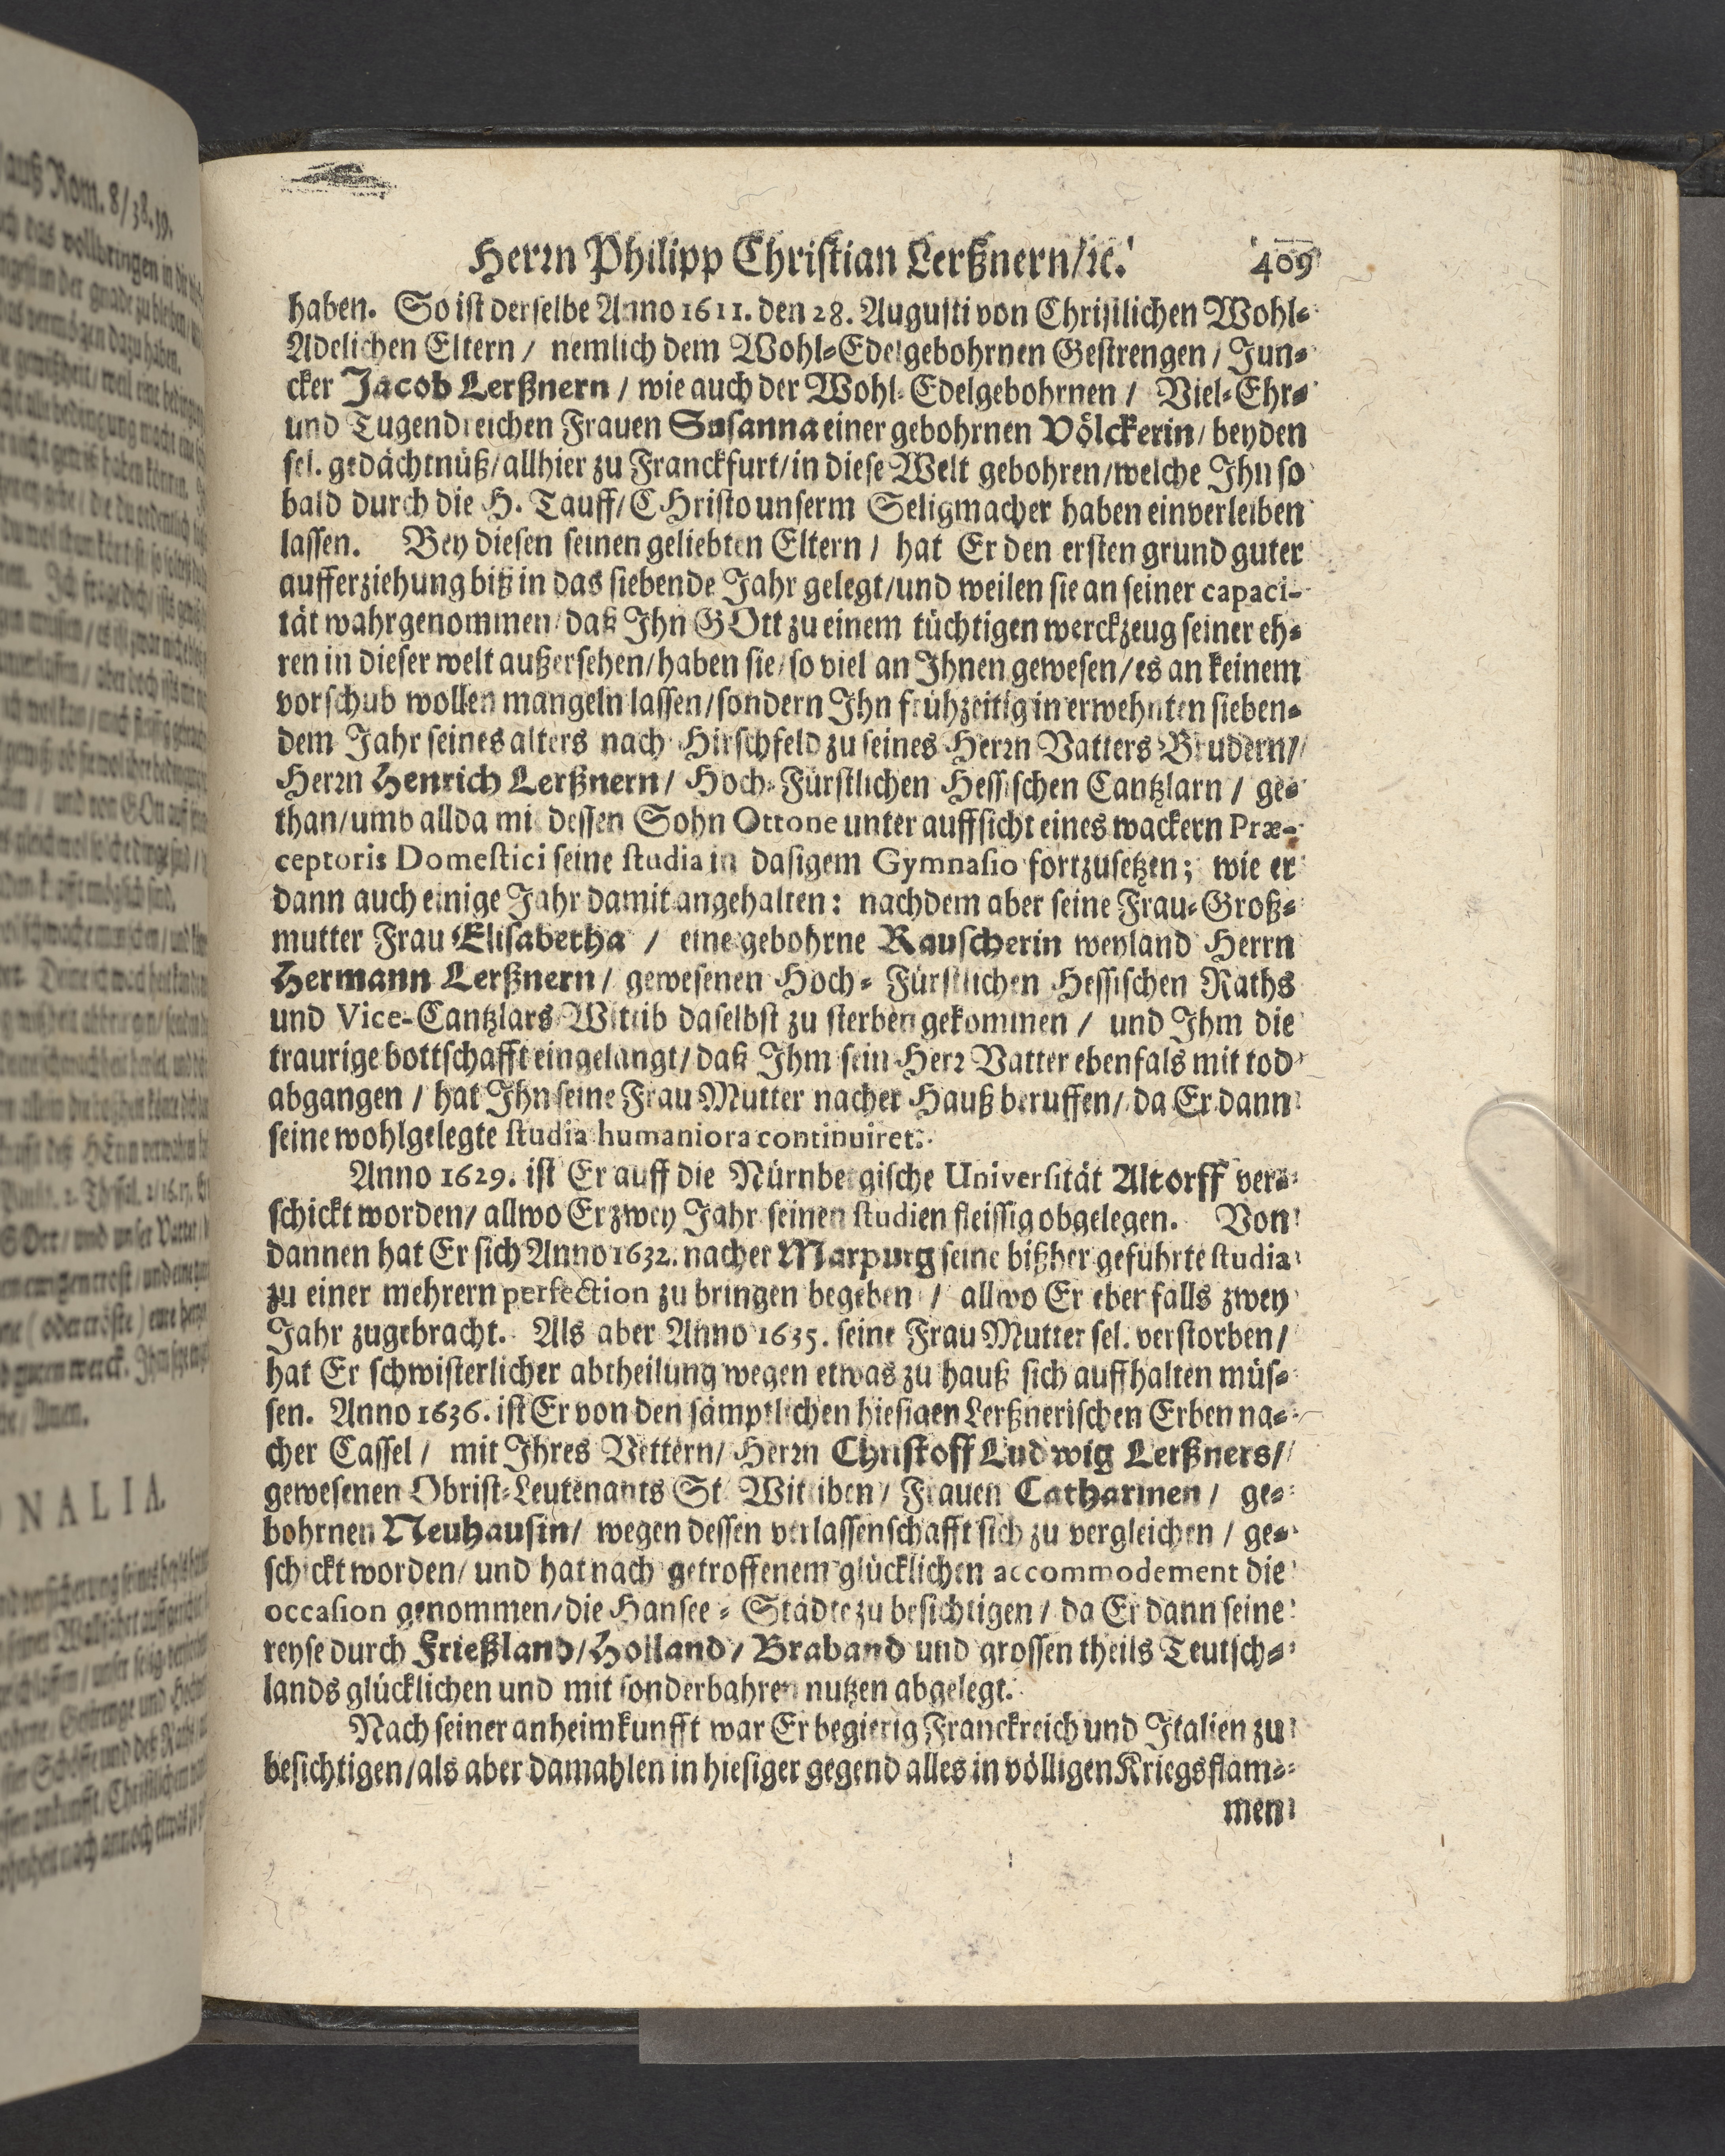 Herrn Philipp Christian Lerßnern/ꝛc. 409
haben. So ist derselbe Anno 1611. den 28. Augusti von Christlichen Wohl-
Adelichen Eltern / nemlich dem Wohl-Edelgebohrnen Gestrengen / Jun-
cker Jacob Lerßnern / wie auch der Wohl-Edelgebohrnen / Viel-Ehr-
und Tugendreichen Frauen Susanna einer gebohrnen Völckerin / beyden
sel. gedächtnüß / allhier zu Franckfurt / in diese Welt gebohren / welche Ihn so
bald durch die H. Tauff / CHristo unserm Seligmacher haben einverleiben
lassen. Bey diesen seinen geliebten Eltern / hat Er den ersten grund guter
aufferziehung biß in das siebende Jahr gelegt / und weilen sie an seiner capaci-
tät wahrgenommen / daß Ihn GOtt zu einem tüchtigen werckzeug seiner eh-
ren in dieser welt außersehen / haben sie / so viel an Ihnen gewesen / es an keinem
vorschub wollen mangeln lassen / sondern Ihn frühzeitig in erwehnten sieben-
dem Jahr seines alters nach Hirschfeld zu seines Herrn Vatters Brudern /
Herrn Henrich Lerßnern / Hoch-Fürstlichen Hessischen Cantzlarn / ge-
than / umb allda mit dessen Sohn Ottone unter auffsicht eines wackern Præ-
ceptoris Domestici seine studia in dasigem Gymnasio fortzusetzen; wie er
dann auch einige Jahr damit angehalten: nachdem aber seine Frau-Groß-
mutter Frau Elisabetha / eine gebohrne Rauscherin weyland Herrn
Hermann Lerßnern / gewesenen Hoch-Fürstlichen Hessischen Raths
und Vice-Cantzlars Wittib daselbst zu sterben gekommen / und Ihm die
traurige bottschafft eingelangt / daß Ihm sein Herr Vatter ebenfals mit tod
abgangen / hat Ihn seine Frau Mutter nacher Hauß beruffen / da Er dann
seine wohlgelegte studia humaniora continuiret.
Anno 1629. ist Er auff die Nürnbergische Universität Altorff ver-
schickt worden / allwo Er zwey Jahr seinen studien fleissig obgelegen. Von
dannen hat Er sich Anno 1632. nacher Marpurg seine bißher geführte studia
zu einer mehrern perfection zu bringen begeben / allwo Er ebenfalls zwey
Jahr zugebracht. Als aber Anno 1635. seine Frau Mutter sel. verstorben /
hat Er schwisterlicher abtheilung wegen etwas zu hauß sich auffhalten müs-
sen. Anno 1636. ist Er von den sämptlichen hiesigen Lerßnerischen Erben na-
cher Cassel / mit Ihres Vettern / Herrn Christoff Ludwig Lerßners /
gewesenen Obrist-Leutenants St. Wittiben / Frauen Catharinen / ge-
bohrnen Neuhausin / wegen dessen verlassenschafft sich zu vergleichen / ge-
schickt worden / und hat nach getroffenem glücklichen accommodement die
occasion genommen / die Hansee-Städte zu besichtigen / da Er dann seine
reyse durch Frießland / Holland / Braband und grossen theils Teutsch-
lands glücklichen und mit sonderbahren nutzen abgelegt.
Nach seiner anheimkunfft war Er begierig Franckreich und Italien zu
besichtigen / als aber damahlen in hiesiger gegend alles in völligen Kriegsflam-
men